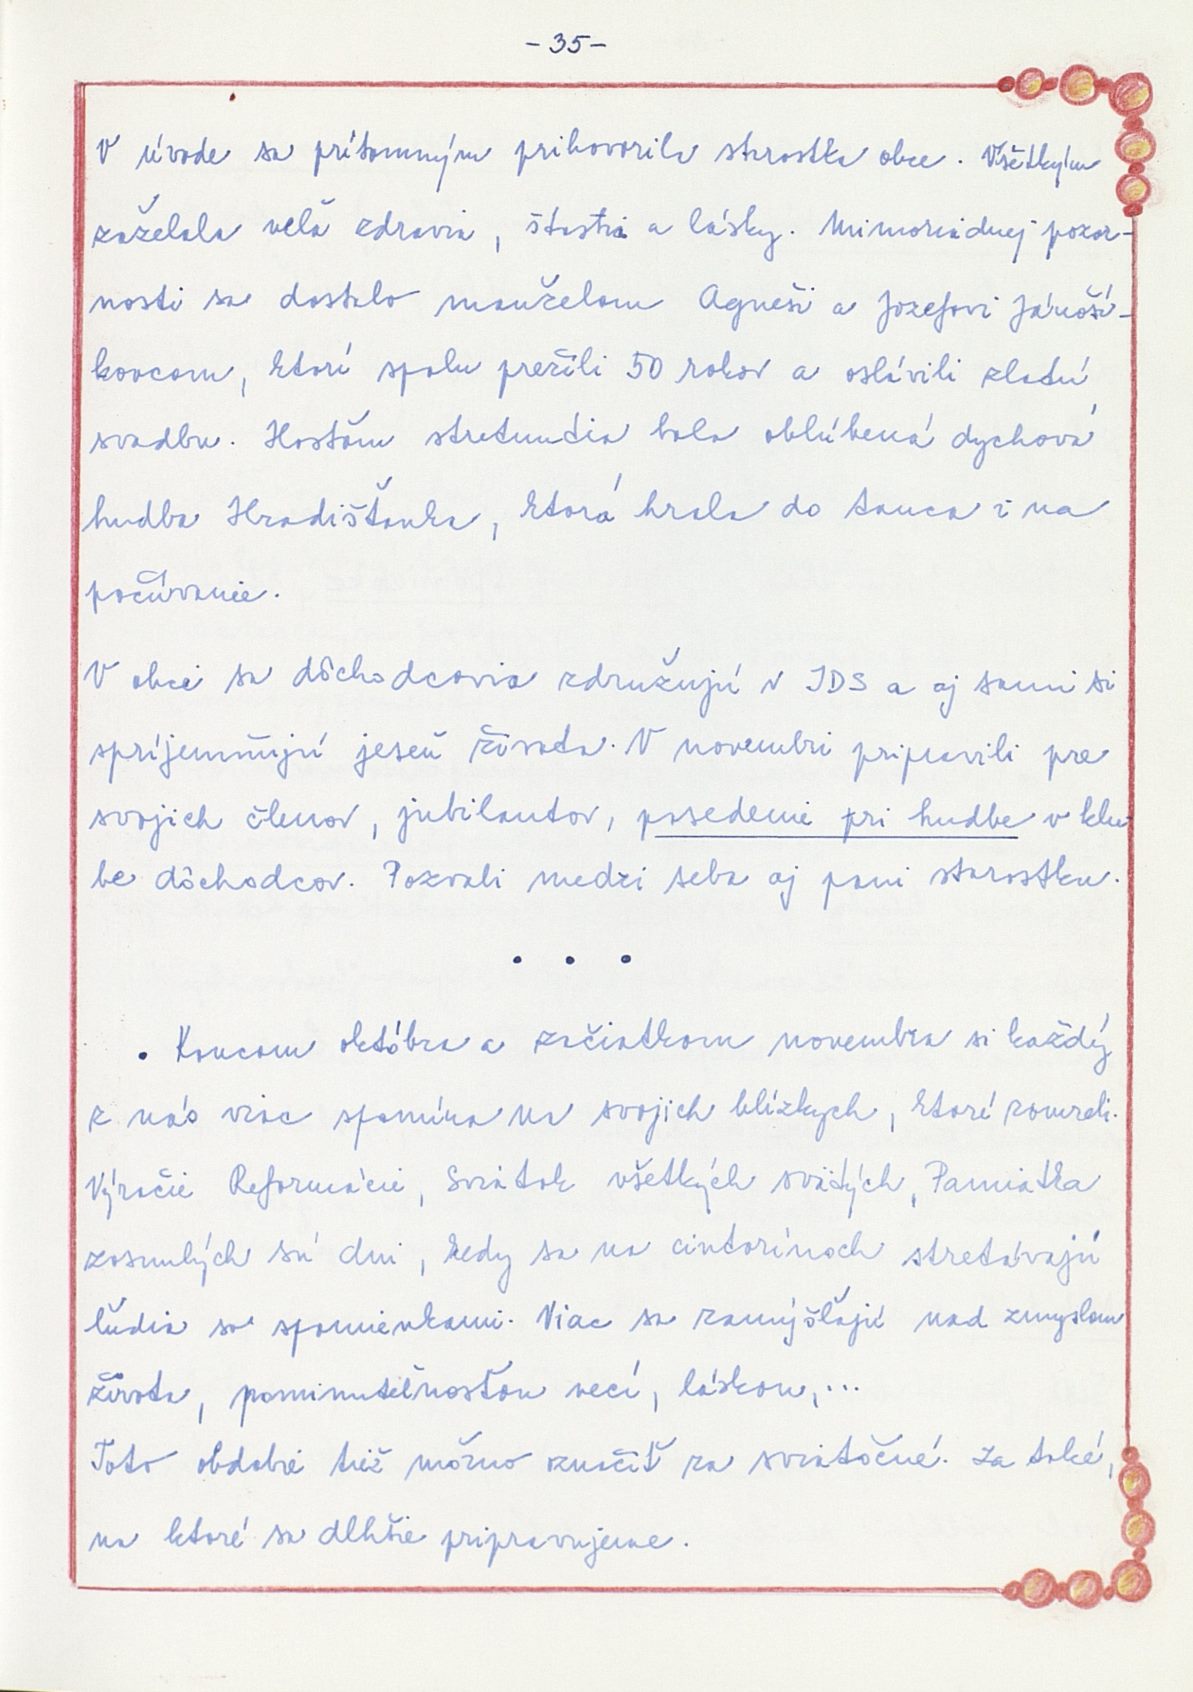 - 35 -
V úvode sa prítomným prihovorila starostka obce. Všetkým
zaželala veľa zdravia, šťastia a lásky. Mimoriadnej pozor-
nosti sa dostalo manželom Agneši a Jozefovi Jánoší-
kovcom, ktorí spolu prežili 50 rokov a oslávili zlatú
svadbu. Hosťom stretnutia bola obľúbená dychová
hudba Hradišťanka, ktorá hrala do tanca i na
počúvanie.
V obci sa dôchodcovia združujú v JDS a aj sami si
spríjemňujú jeseň života. V novembri pripravili pre
svojich členov, jubilantov, posedenie pri hudbe v klu
be dôchodcov. Pozvali medzi seba aj pani starostku.
• • •
• Koncom októbra a začiatkom novembra si každý
z nás viac spomína na svojich blízkych, ktorí zomreli.
Výročie Reformácie, Sviatok všetkých svätých, Pamiatka
zosnulých sú dni, kedy sa na cintorínoch stretávajú
ľudia so spomienkami. Viac sa zamýšľajú nad zmyslom
života, pominuteľnosťou vecí, láskou,...
Toto obdobie tiež možno označiť za sviatočné. Za také,
na ktoré sa dlhšie pripravujeme.